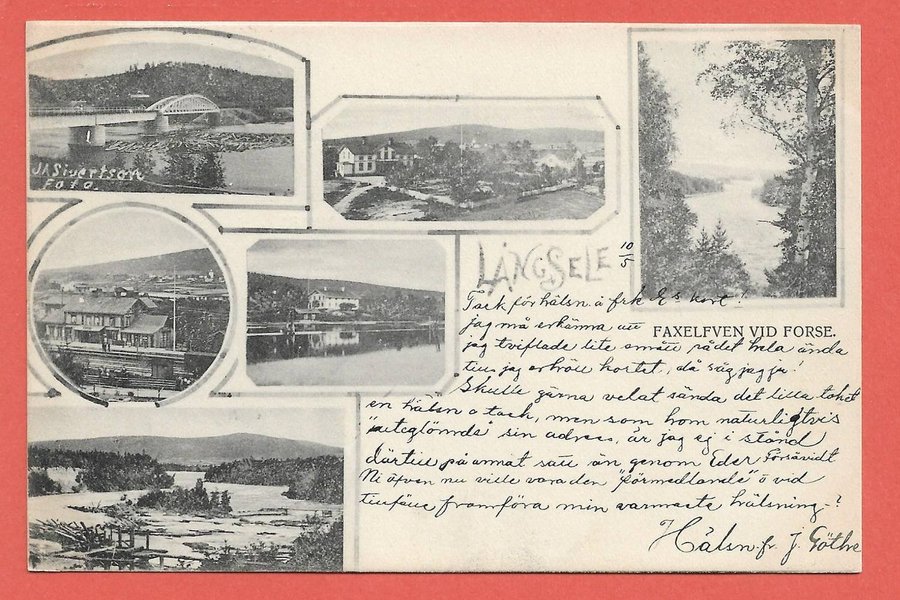 J. Sivertson
Foto.
LÅNGSELE 10/5
FAXELFVEN VID FORSE.
Tack för hälsn å frk E:s kort!
jag må erkänna att
jag tviflade lite smått rådet hela ända
till jag erhöll kortet, då såg jag ju!
Skulle gärna velat sända det lilla tokot
en hälsn o tack, men som hon naturligtvis
"uteglömde" sin adress, är jag ej i stånd
därtill på annat sätt än genom Eder, försåvidt
Ni äfven nu ville vara den "förmedlande" o vid
tillfälle framföra min varmaste hälsning?
Hälsn fr J. Göthe